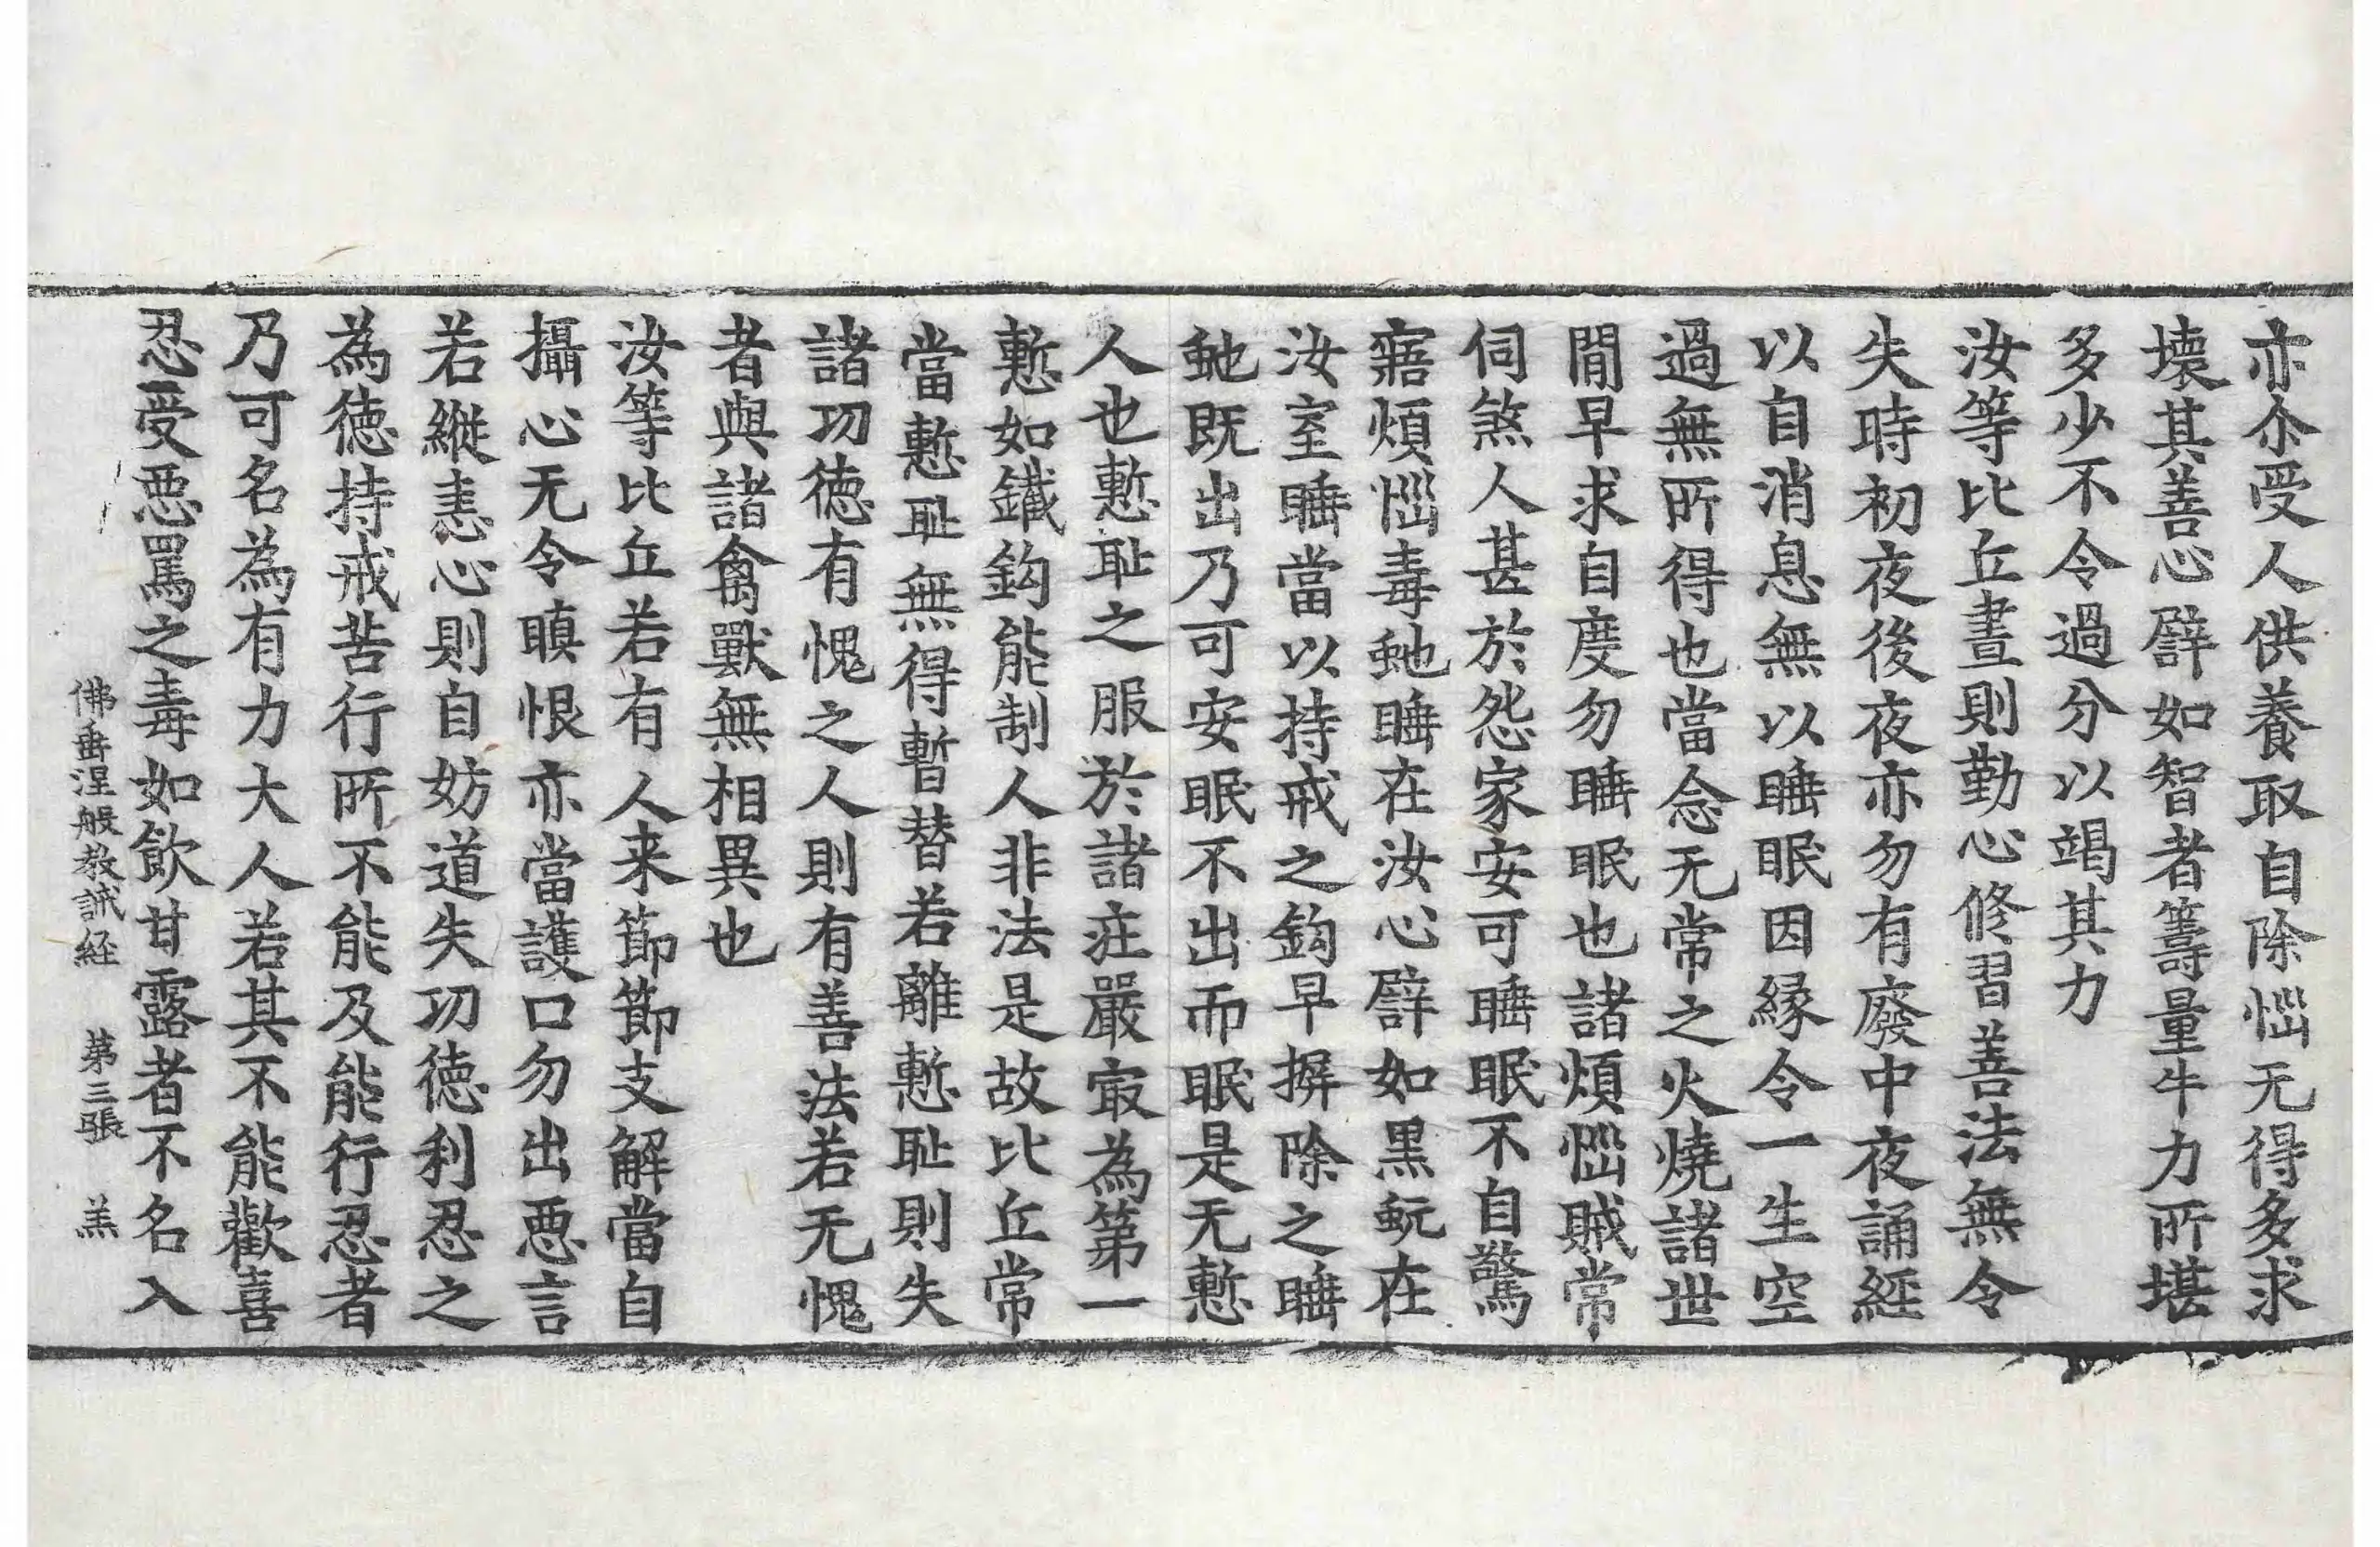 亦尒受人供養取自除惱无得多求
壞其善心譬如智者籌量牛力所堪
多少不令過分以竭其力
汝等比丘晝則勤心修習善法無令
失時初夜後夜亦勿有廢中夜誦經
以自消息無以睡眠因緣令一生空
過無所得也當念无常之火燒諸世
閒早求自度勿睡眠也諸煩惱賊常
伺煞人甚於怨家安可睡眠不自驚
寤煩惱毒虵睡在汝心譬如黑蚖在
汝室睡當以持戒之鈎早摒除之睡
虵既出乃可安眠不出而眠是无慙
人也慙耻之服於諸莊嚴㝡為第一
慙如鐵鈎能制人非法是故比丘常
當慙耻無得暫替若離慙耻則失
諸功德有愧之人則有善法若无愧
者與諸禽獸無相異也
汝等比丘若有人来節節支解當自
攝心无令瞋恨亦當護口勿出惡言
若縱恚心則自妨道失功德利忍之
為德持戒苦行所不能及能行忍者
乃可名為有力大人若其不能歡喜
忍受惡罵之毒如飲甘露者不名入
佛垂涅般教誡経 第三張 羔